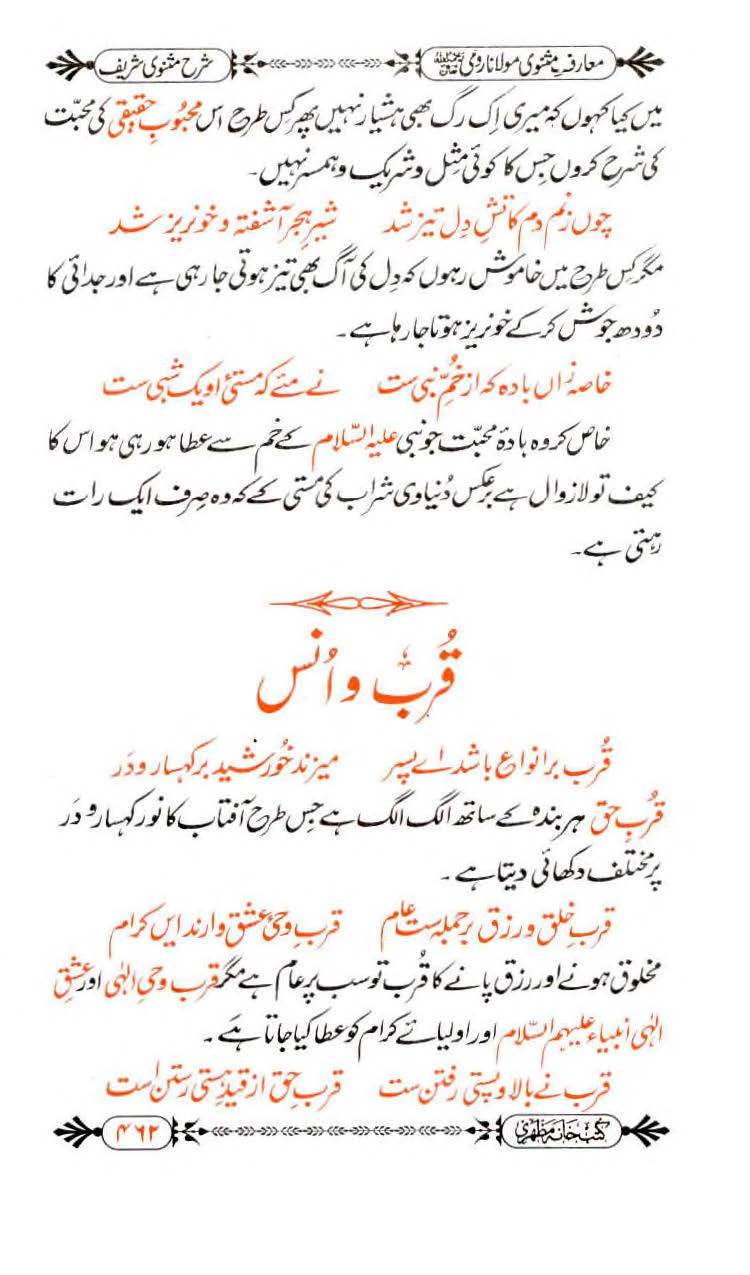 معارفِ مثنوی مولانا رومی رحمۃ اللہ تعالیٰ علیہ    شرح مثنوی شریف
میں کیا کہوں کہ میری اِک رگ بھی ہشیار نہیں پھر کِس طرح اس محبُوبِ حقیقی کی محبّت
کی شرح کروں جِس کا کوئی مِثل و شریک و ہمسر نہیں۔
چوں زنم دم کاتشِ دِل تیز شد    شیرِ ہجر آشفتہ و خونریز شد
مگر کِس طرح میں خاموش رہوں کہ دِل کی آگ بھی تیز ہوتی جا رہی ہے اور جدائی کا
دُودھ جوش کر کے خونریز ہوتا جا رہا ہے۔
خاصہ زاں بادہ کہ از خُمِّ نبی ست    نے مئے کہ مستئ او یک شبی ست
خاص کر وہ بادۂ محبّت جو نبی علیہ السّلام کے خم سے عطا ہو رہی ہو اس کا
کیف تو لازوال ہے برعکس دُنیاوی شراب کی مستی کے کہ وہ صِرف ایک رات
رہتی ہے۔
قُرب و اُنس
قُرب بر انواع باشد اے پسر    میزند خُورشید بر کہسار و دَر
قُربِ حق ہر بندہ کے ساتھ الگ الگ ہے جِس طرح آفتاب کا نور کہسار و دَر
پر مختلف دکھائی دیتا ہے۔
قربِ خلق و رزق بر جملہ ست عام    قربِ وحیِ عشق دارند ایں کرام
مخلوق ہونے اور رزق پانے کا قُرب تو سب پر عام ہے مگر قربِ وحیِ الٰہی اور عشقِ
الٰہی انبیاء علیہم السّلام اور اولیائے کرام کو عطا کیا جاتا ہے۔
قرب نے بالا و پستی رفتن ست    قربِ حق از قیدِ ہستی رستن است
کتب خانہ مظہری    ۴۶۲